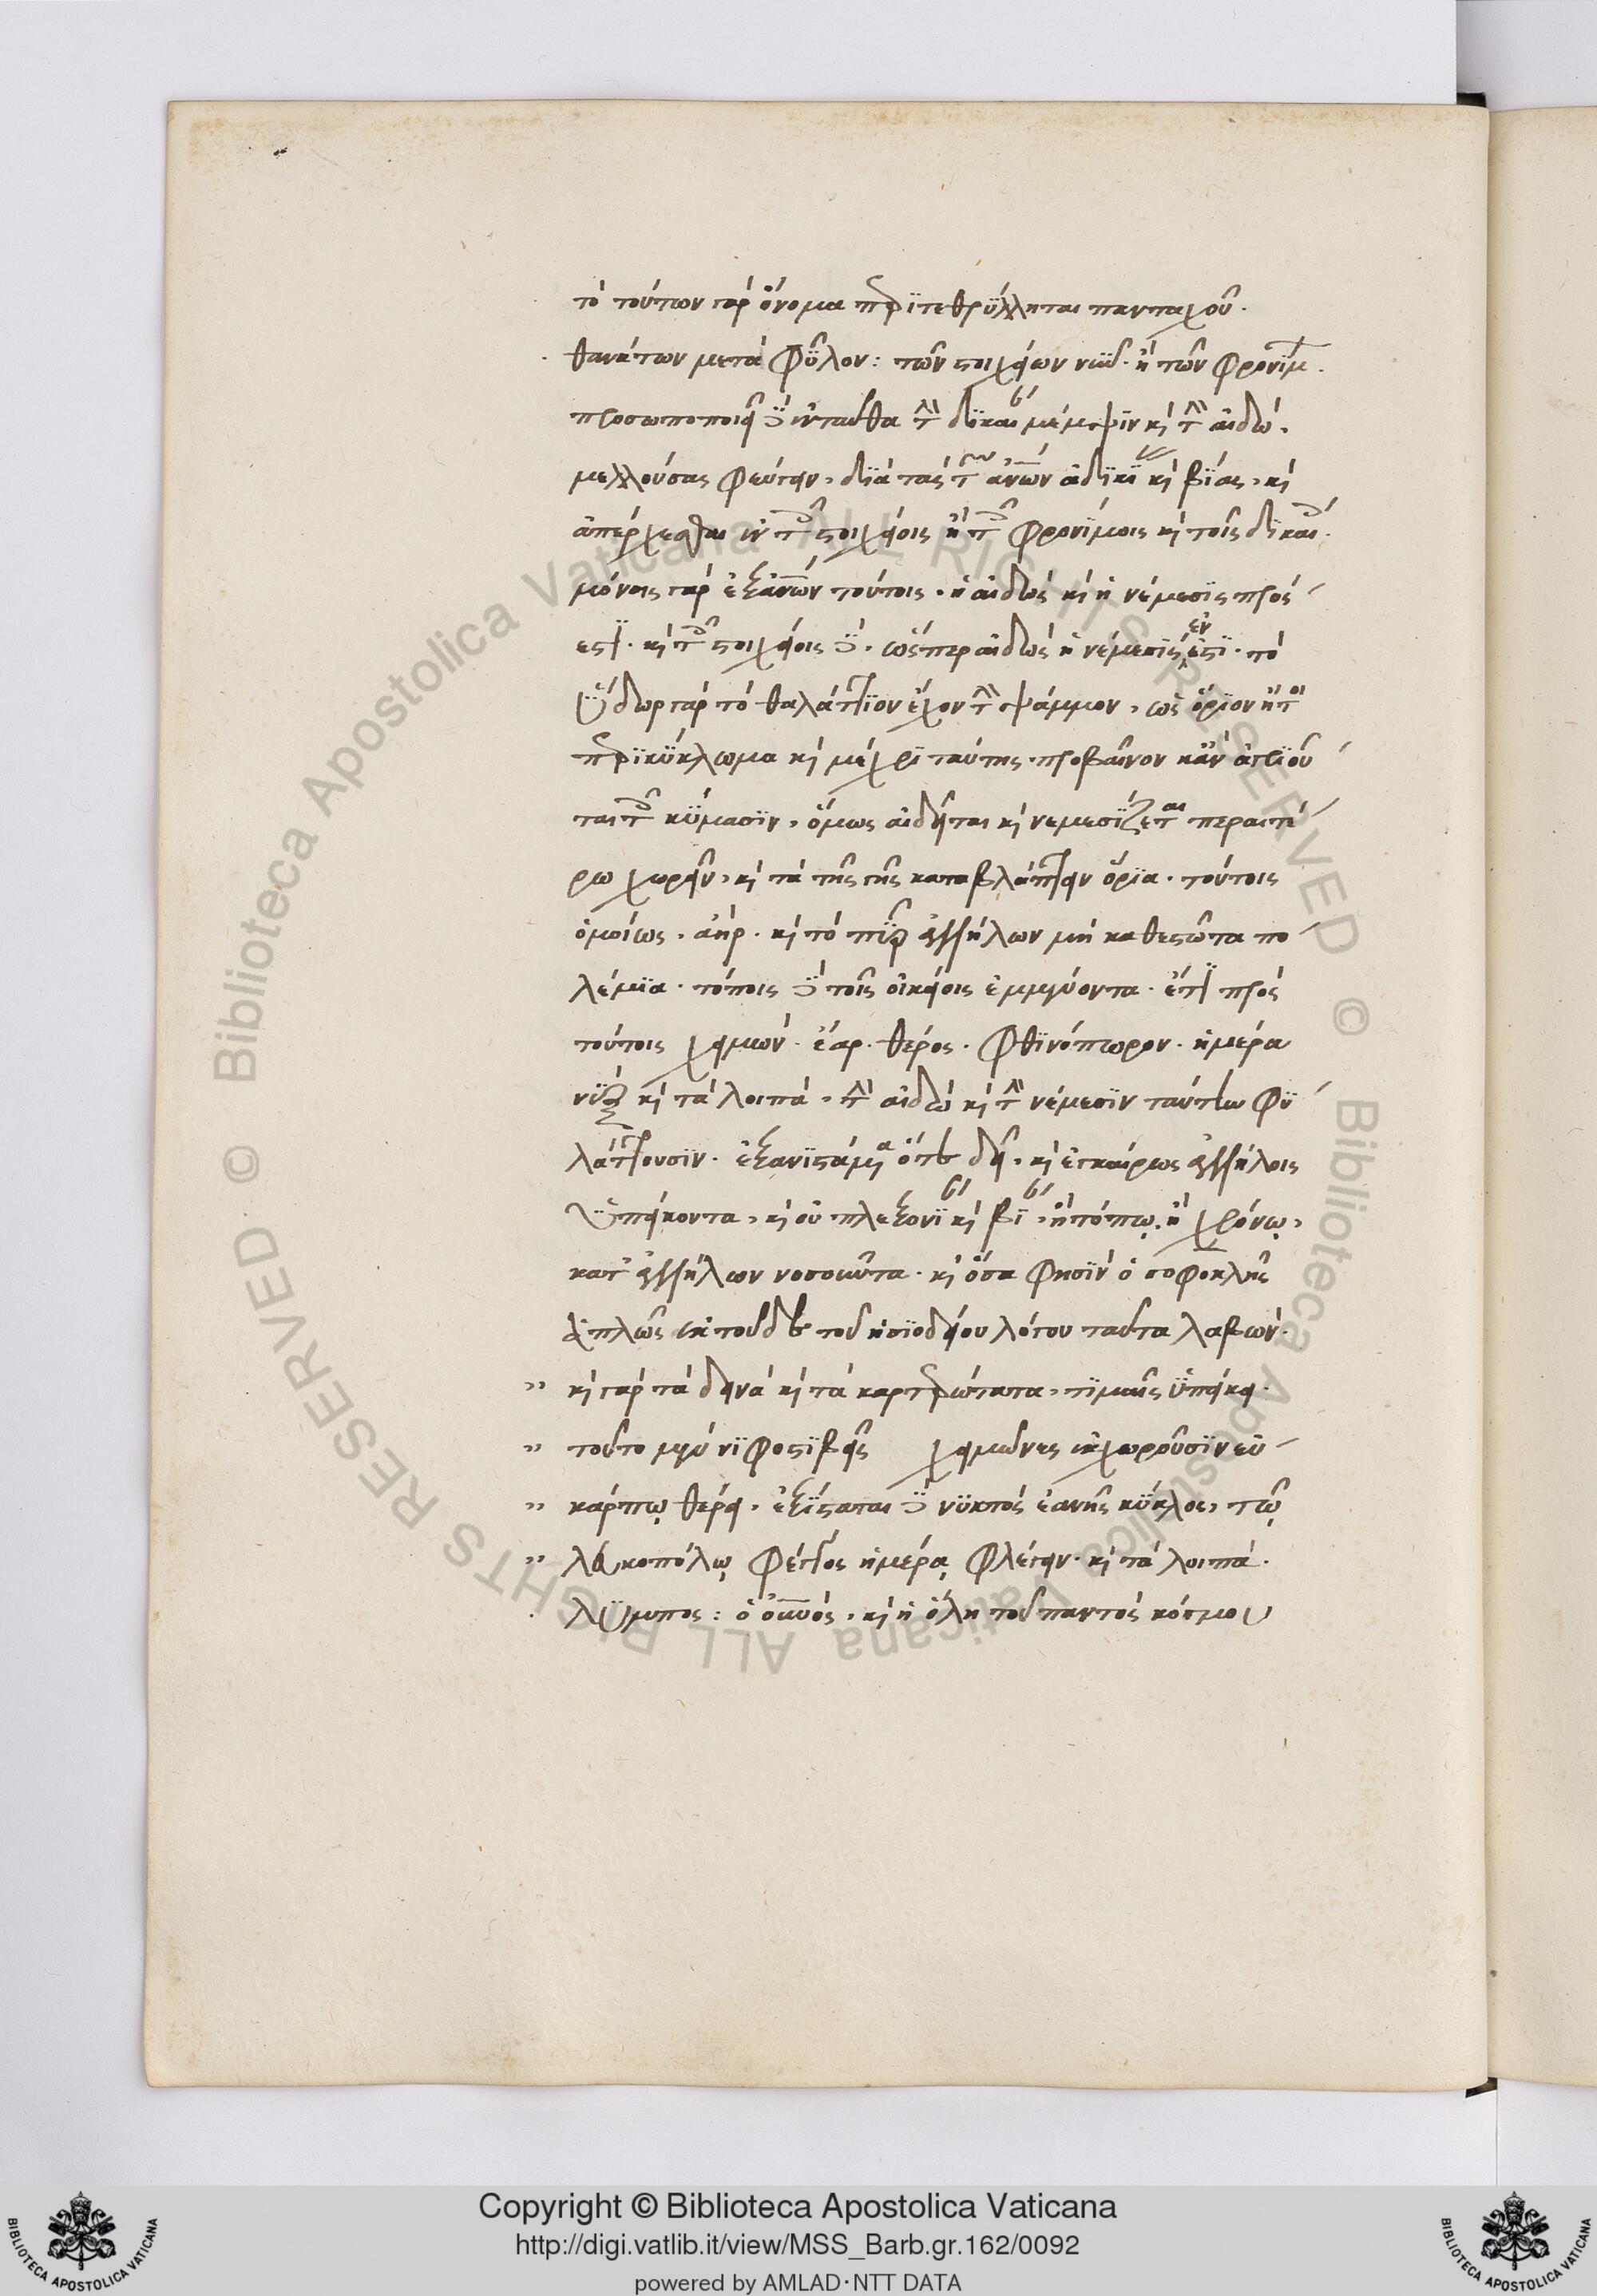 τὸ τούτων γὰρ ὄνομα περιτεθρύλληται πανταχοῦ.
θανάτων μετὰ φῦλον: τῶν στοιχείων νῦν. ἢ τῶν φρονίμ.
προσωποποιεῖ δὲ ἐνταῦθα τὴν δικαίαν μέμψιν καὶ τὴν αἰδώ.
μελλούσας φεύγειν, διὰ τὰς τῶν ἀνων ἀδικίας καὶ βίας, καὶ
ἀπέρχεσθαι ἐν τοῖς στοιχείοις ἢ τοῖς φρονίμοις καὶ τοῖς δικαίοις.
μόνοις γὰρ ἐξ ἀνων τούτοις. ἡ αἰδὼς καὶ ἡ νέμεσις πρόσ
εστι. καὶ τοῖς στοιχείοις δὲ. ὥσπερ αἰδὼς ἡ νέμεσις ἐν ἐστί. τὸ
ὕδωρ γὰρ τὸ θαλάττιον ἔχον τὴν ψάμμον, ὡς ὅριον ἤτοι
περικύκλωμα καὶ μέχρι ταύτης προβαῖνον κἂν ἀγριοῦ
ται τοῖς κύμασιν, ὅμως αἰδεῖται καὶ νεμεσίζεται περαιτέ
ρω χωρεῖν, καὶ τὰ τῆς γῆς καταβλάπτειν ὅρια. τούτοις
ὁμοίως. ἀὴρ. καὶ τὸ πῦρ ἀλλήλων μὴ καθεστῶτα πο
λέμια. τόποις δὲ τοῖς οἰκείοις ἐμμένοντα. ἔτι πρὸς
τούτοις χειμὼν. ἔαρ. θέρος. φθινόπωρον. ἡμέρα
νὺξ καὶ τὰ λοιπὰ, τὴν αἰδὼ καὶ τὴν νέμεσιν ταύτην φυ
λάττουσιν. ἐξανιστάμενα ὅτε δεῖ, καὶ εὐκαίρως ἀλλήλοις
ὑπείκοντα, καὶ οὐ πλεξονίαν καὶ βίαν, ἢ τόπῳ. ἢ χρόνῳ,
κατ' ἀλλήλων νοσοῦντα. καὶ ὅσα φησὶν ὁ σοφοκλῆς
ἁπλῶς ἐκ τοῦδε τοῦ ἡσιοδείου λόγου ταῦτα λαβών.
" καὶ γὰρ τὰ δεινὰ καὶ τὰ καρτερώτατα, τιμαῖς ὑπείκει.
" τοῦτο μὲν νιφοστιβεῖς χειμῶνες ἐκχωροῦσιν εὐ
" κάρπῳ θέρει. ἐξίσταται δὲ νυκτὸς ἐανῆς κύκλος, τῷ
" λευκοπόλῳ φέγγος ἡμέρᾳ φλέγειν. καὶ τὰ λοιπά.
λύμπος: ὁ οὐνὸς, καὶ ἡ ὅλη τοῦ παντὸς κόσμου
Copyright © Biblioteca Apostolica Vaticana
http://digi.vatlib.it/view/MSS_Barb.gr.162/0092
powered by AMLAD·NTT DATA